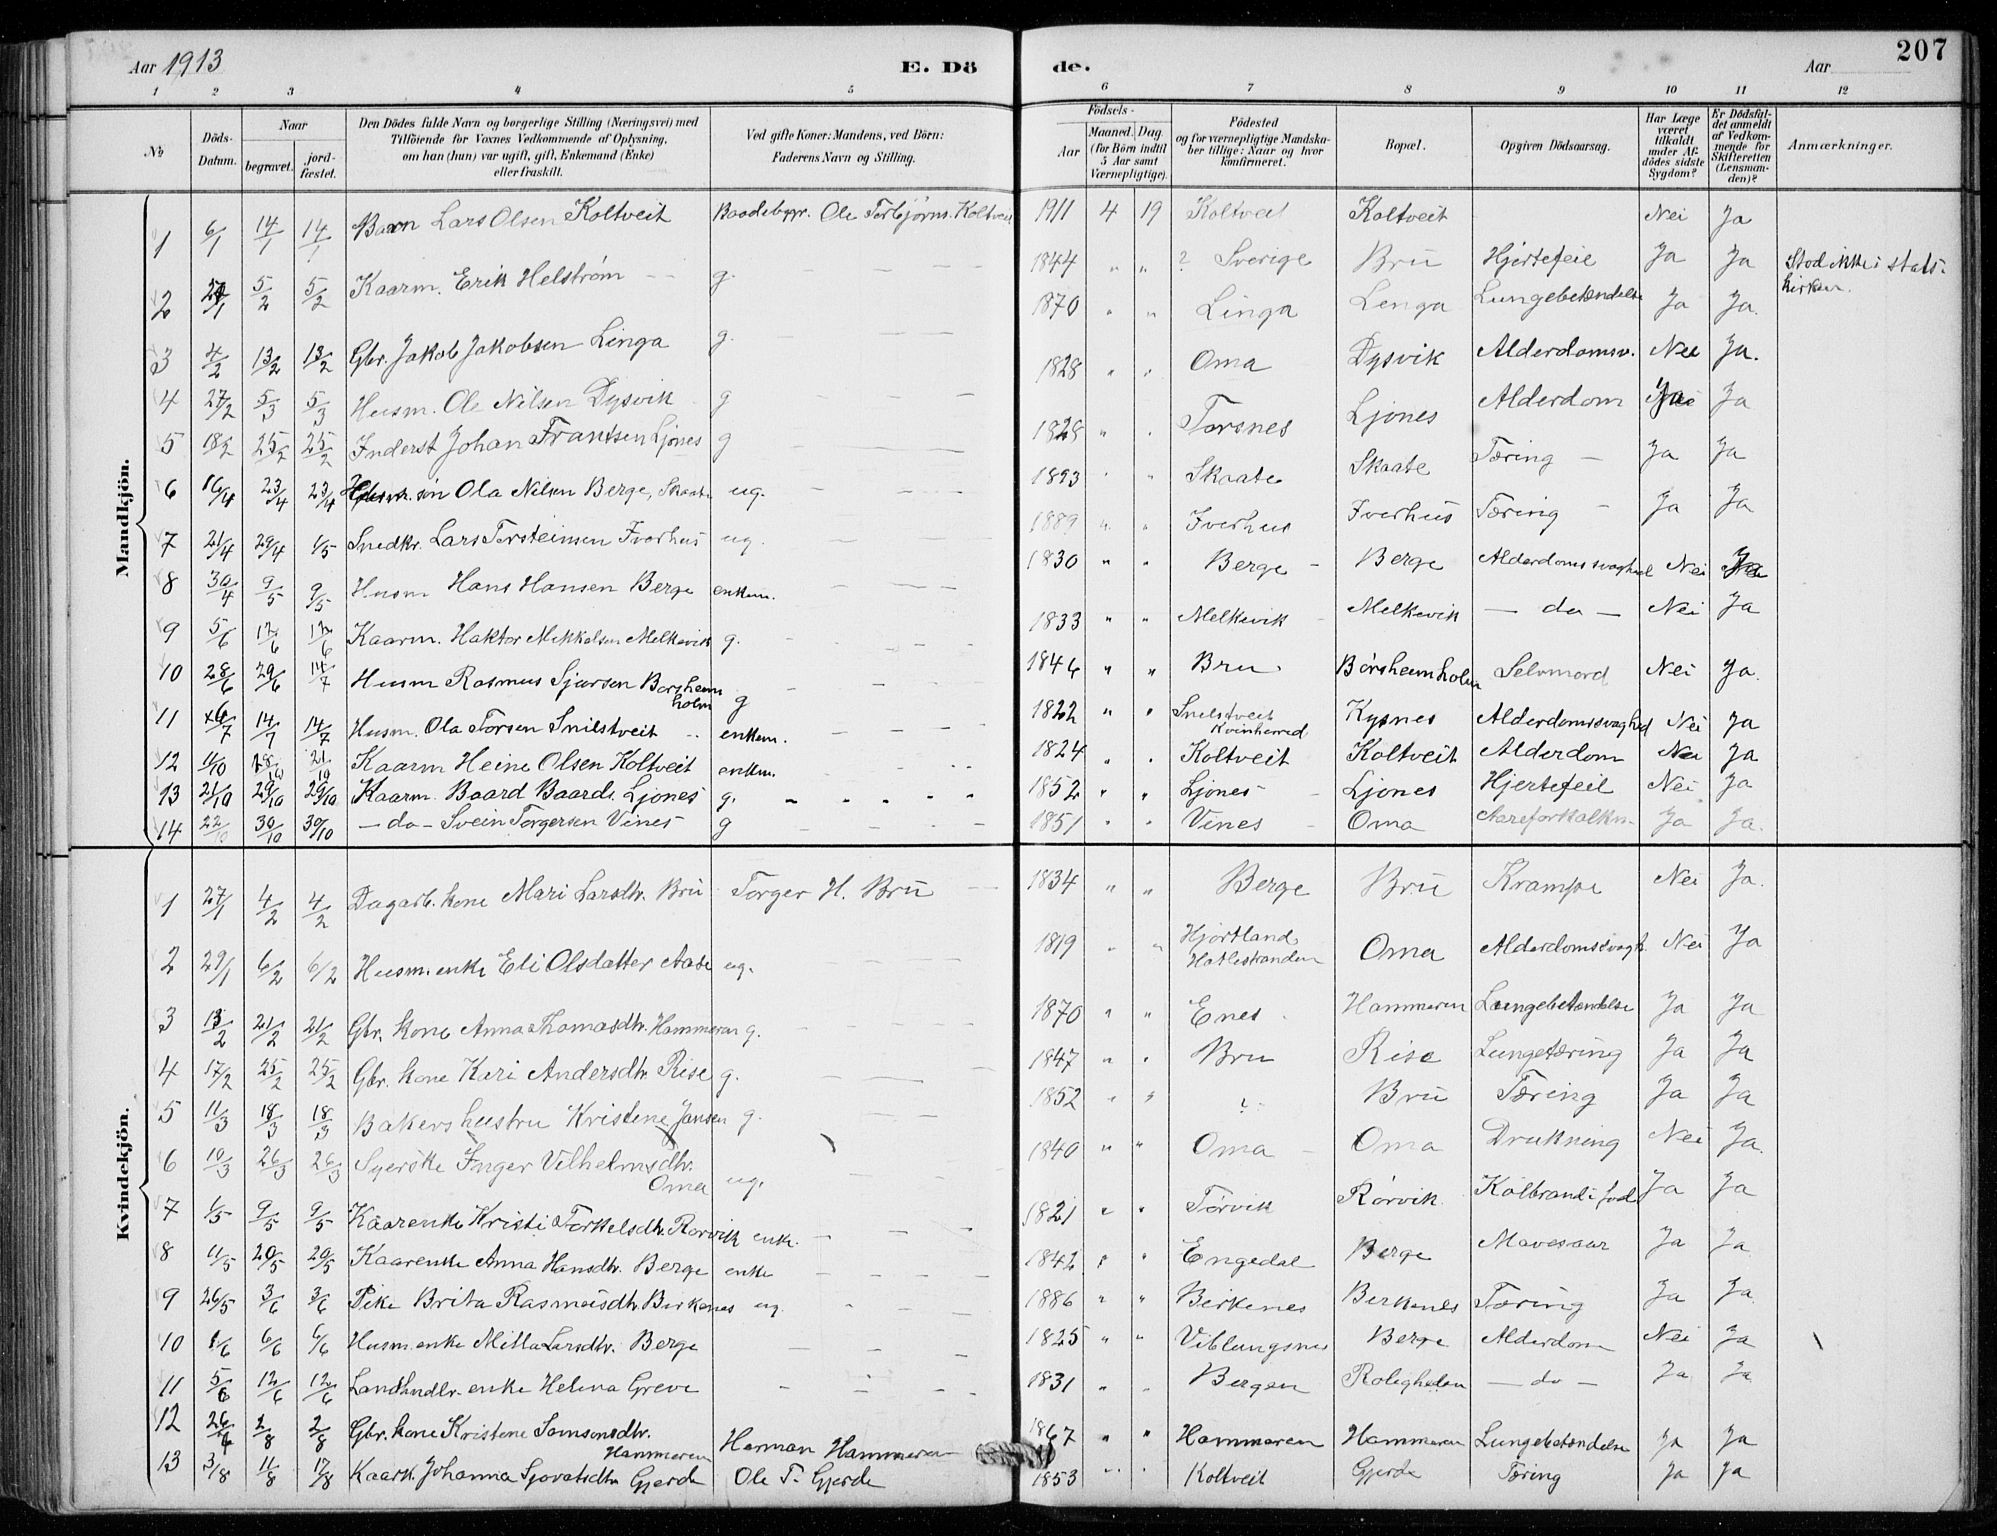 Aar 1913 E. Dö de. Aar 207
1 2 3 4 5 6 7 8 9 10 11 12
No Döds-Datum. Naar begravet. jord-fæstet. Den Dödes fulde Navn og borgerlige Stilling (Næringsvei) med Tilföiende for Voxnes Vedkommende af Oplysning, om han (hun) var ugift, gift, Enkemand (Enke) eller fraskilt. Ved gifte Koner: Mandens, ved Börn: Faderens Navn og Stilling. Födsels- Aar Maaned. Dag. (for Börn indtil 5 Aar samt Værnepligtige). Födested og for værnepligtige Mandskaber tillige: Naar og hvor konfirmeret. Bopæl. Opgiven Dödsaarsag. Har Læge været tilkaldt under Afdödes sidste Sygdom? Er Dödsfaldet anmeldt af Vedkommende for Skifteretten (Lensmanden)? Anmærkninger.
Mandkjön.
1 6/1 14/1 14/1 Barn Lars Olsen Koltveit Baadebygr. Ole Torbjørns. Koltveit 1911 4 19 Koltveit Koltveit Nei Ja
2 5/2 5/2 Kaarm. Erik Helstrøm g. 1844 " " ? Sverige Bru Hjertefeil Ja Ja Stod ikke i stats-
kirken.
3 4/2 13/2 13/2 Gbr. Jakob Jakobsen Linga g. 1870 " " Linga Lenga Lungebetændelse Ja Ja.
4 27/2 5/3 5/3 Husm. Ole Nilsen Dysvik g 1828 " " Oma Dysvik Alderdomsv. Nei Ja.
5 18/2 25/2 25/2 Inderst Johan Frantsen Ljones g 1828 " " Torsnes Ljones Alderdom Ja Ja
6 16/4 23/4 23/4 Husm. søn Ola Nilsen Berge, Skaate ug. 1893 " " Skaate Skaate Tæring Ja Ja
7 21/4 29/4 1/5 Snedkr. Lars Torsteinsen Iverhus ug. 1889 " " Iverhus Iverhus Tæring Ja Ja
8 30/4 9/5 9/5 Husm Hans Hansen Berge enkem. 1830 " " Berge Berge Alderdomssvaghed Nei Ja
9 5/6 12/6 12/6 Kaarm. Haktor Mikkelsen Melkevik g. 1833 " " Melkevik Melkevik — do — Nei Ja
10 28/6 29/6 14/7 Husm Rasmus Sjursen Børsheim
holm g 1846 " " Bru Børsheimholm Selvmord Nei Ja.
11 6/7 14/7 14/7 Husm. Ola Torsen Snilstveit enkem. 1822 " " Snilstveit
Kvinherred Kysnes Alderdomssvaghed Nei Ja
12 11/10 18/10 21/10 Kaarm Heine Olsen Koltveit enkm. 1824 " " Koltveit Koltveit Alderdom Nei Ja
13 21/10 29/10 29/10 Kaarm. Baard Baards. Ljones g. 1852 " " Ljones Ljones Hjertefeil Nei Ja
14 22/10 30/10 30/10 — do — Svein Torgersen Vines g 1851 " " Vines Oma Aareforkalkn. Ja Ja.
Kvindekjön.
1 27/1 4/2 4/2 Dagarb. kone Mari Larsdtr. Bru Torger H. Bru 1834 " " Berge Bru Krampe Nei Ja.
2 29/1 6/2 6/2 Husm. enke Eli Olsdatter Aase ug. 1819 " " Hjortland
Hatlestranden Oma Alderdomssvagh. Nei Ja
3 13/2 21/2 21/2 Gbr. kone Anna Thomasdtr. Hammeren g. 1870 " " Enes Hammeren Lungebetændelse Ja Ja
4 17/2 25/2 25/2 Gbr. kone Kari Andersdtr. Rise g. 1847 " " Bru Rise Lungetæring Ja Ja
5 11/3 18/3 18/3 Bakers hustru Kristene Jansen g. 1852 " " ? Bru Tæring Ja Ja
6 10/3 26/3 26/3 Syerske Inger Vilhelmsdtr.
Oma ug. 1840 " " Oma Oma Drukning Nei Ja.
7 1/5 9/5 9/5 Kaarenke Kristi Torkelsdtr. Rørvik enke. 1821 " " Tørvik Rørvik Kolbrand i fod Ja Ja
8 11/5 20/5 20/5 Kaarenke Anna Hansdtr. Berge enke 1842 " " Engedal Berge Mavesaar Ja Ja
9 26/5 3/6 3/6 Pike Brita Rasmusdtr. Birkenes ug. 1886 " " Birkenes Berkenes Tæring Ja Ja.
10 1/6 6/6 6/6 Husm. enke Milla Larsdtr. Berge 1825 " " Viblungsnes Berge Alderdom Nei Ja
11 5/6 12/6 12/6 Landhndlr. enke Helena Greve 1831 " " Bergen Roligheten — do — Ja Ja
12 26/4 2/8 2/8 Gbr. kone Kristene Samsonsdtr.
Hammeren Herman Hammeren 1867 " " Hammeren Hammeren Lungebetændelse Ja Ja
13 3/8 11/8 17/8 Kaark. Johanna Sjovatsdtr. Gjerde Ole T. Gjerde 1853 " " Koltveit Gjerde Tæring Ja Ja